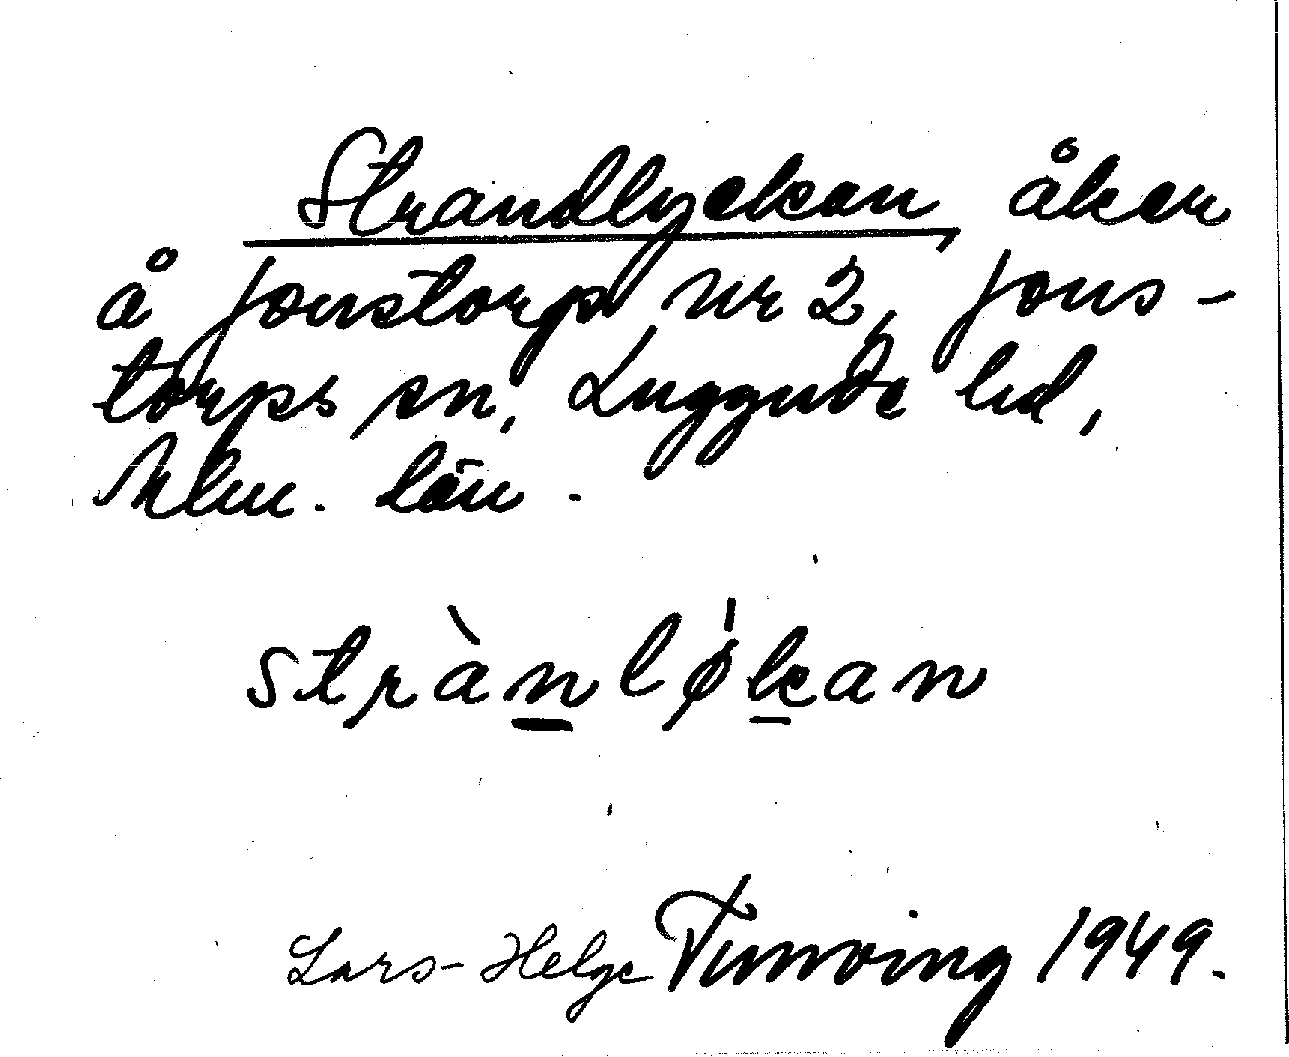 Strandlyckan, åker
å Jonstorp nr 2, Jons-
torps sn, Luggude hd,
Mlm. län.
strànlǿkan
Lars-Helge Tunving 1949.